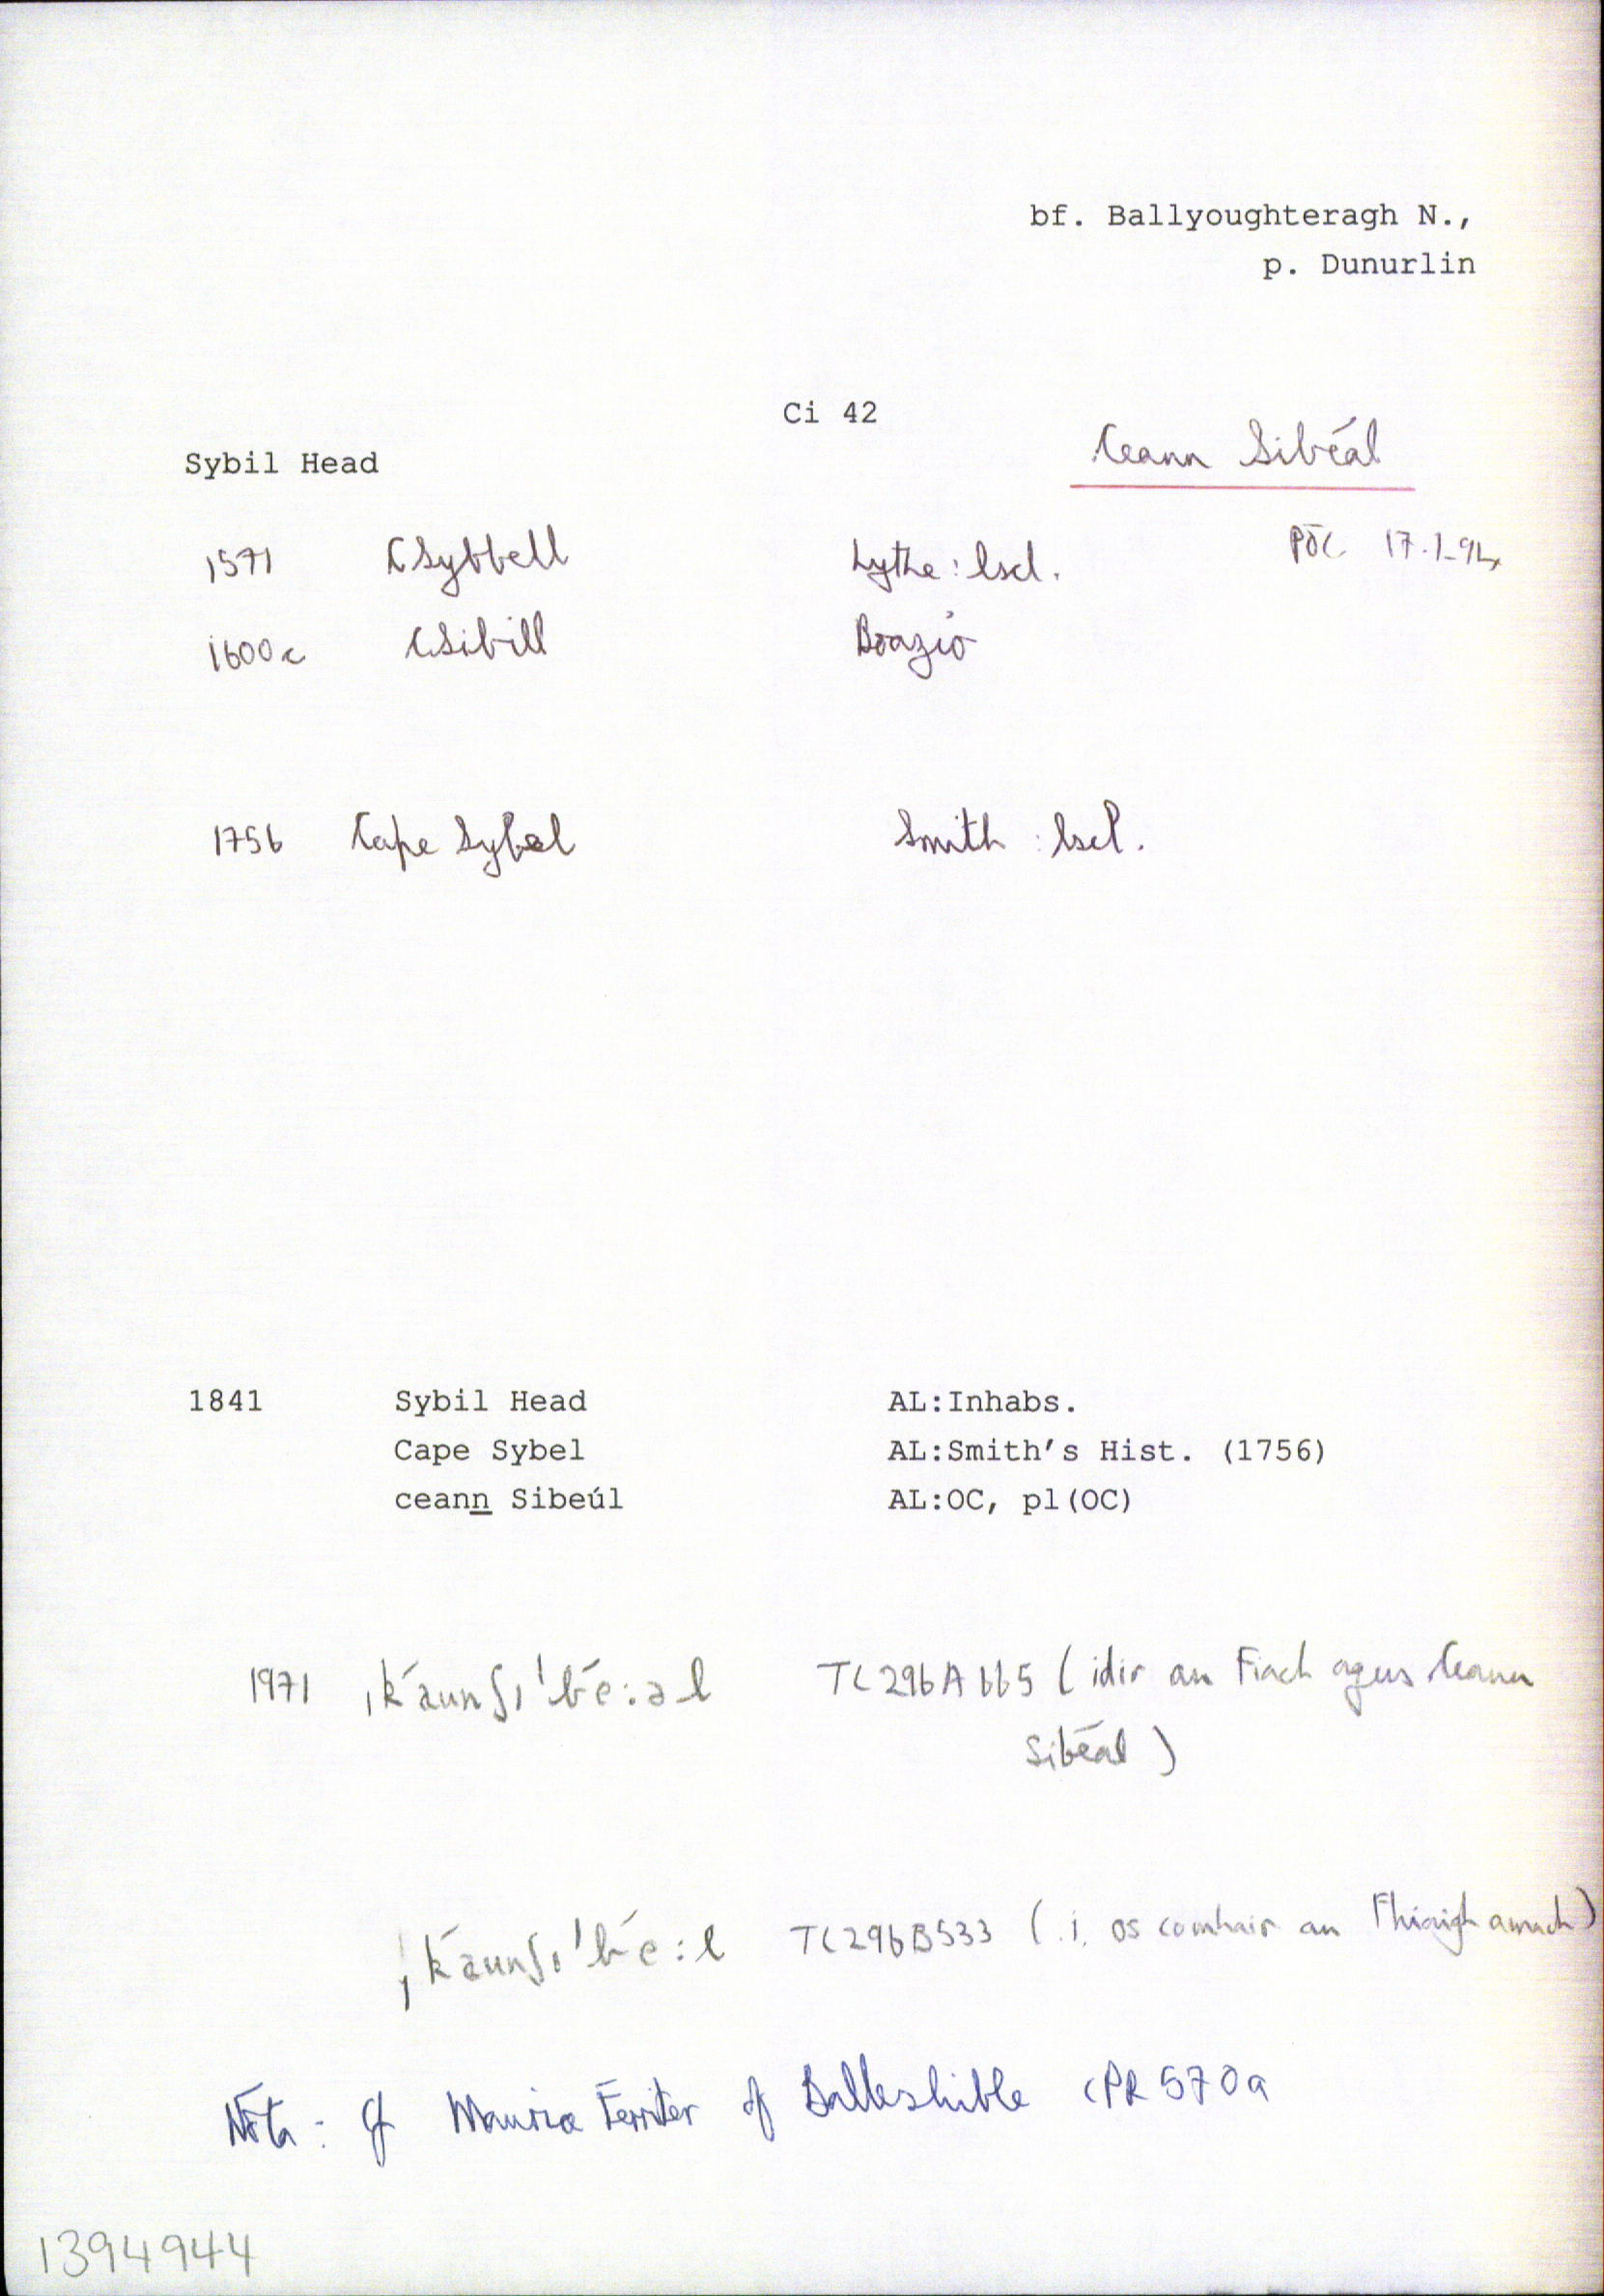 bf. Ballyoughteragh N.,
p. Dunurlin
Ci 42
Sybil Head
Ceann Sibéal
PÓC 17.1.94
1571 CSybbell Lythe: lscl.
1600c CSibill Boazio
1756 Cape Sybel Smith: lscl.
1841 Sybil Head AL:Inhabs.
Cape Sybel AL:Smith's Hist. (1756)
ceann Sibeúl AL:OC, pl(OC)
1971 ˌḱaunʃıˈb́e:əl TC296A665 (idir an Fiach agus Ceann
Sibéal)
ˌḱaunʃıˈb́e:l TC296B533 (.i. os comhair an Fhiaigh amach)
Nóta: Cf Maurice Ferriter of Balleshible CPR 570a
1394944